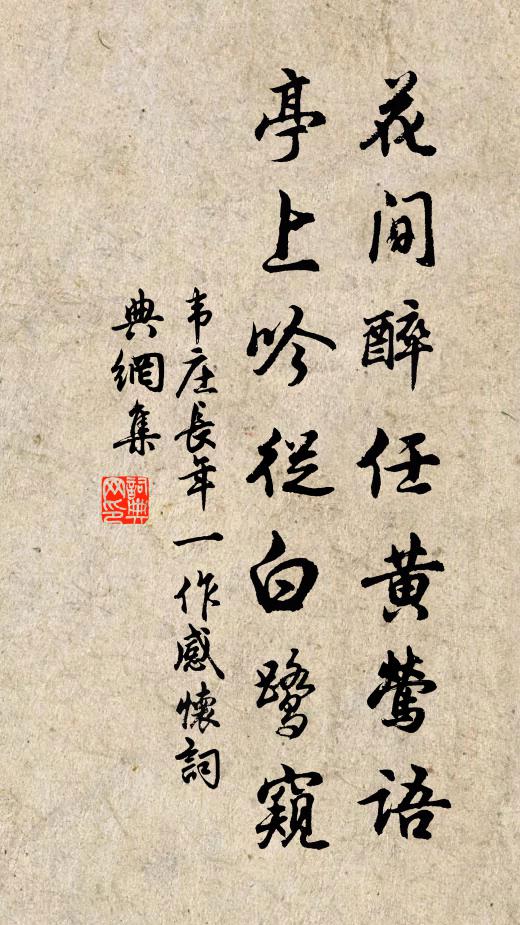 花间醉任黄莺语
亭上吟从白鹭窥
韦庄長年一作感懷詞
典網集
詞典网印